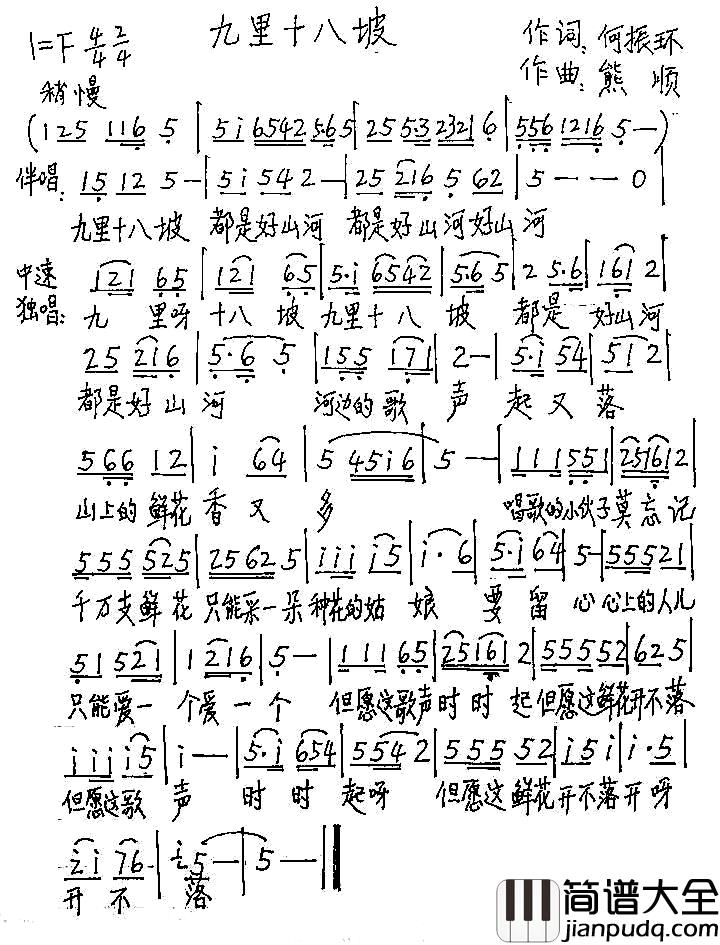 九里十八坡
1=F 4/4 2/4
作词:何振环
作曲:熊顺
稍慢
(125 116 5 | 5i 6542 5·65 | 25 5·3 2321 6 | 556 1216 5—)
伴唱: 15 12 5— | 5i 54 2— | 25 216 5 62 | 5 — — 0 |
九里十八坡 都是好山河 都是好山河好山河
中速 121 65 | 121 65 | 5·i 6542 | 5·65 | 2 5·6 | 161 2 |
独唱: 九 里呀 十八 坡 九里十八 坡 都是 好山河
25 216 | 5·6 5 | 155 171 | 2— | 5·i 54 | 51 2 |
都是好山河 河边的歌 声 起又落
566 12 | i 64 | 5 45i6 | 5 — | 111551 | 251612 |
山上的鲜花香又多 唱歌的小伙子莫忘记
555 525 | 2562 5 | iii i5 | i·6 | 5·i 64 | 5— | 555521 |
千万支鲜花只能采一朵种花的姑娘 要留 心心上的人儿
51 521 | 1 216 | 5— | 111 65 | 25161 2 | 5555 52 | 62 5 |
只能爱一个爱一个 但愿这歌声时时 起但愿这鲜花开不落
iii i5 | i— — | 5·i 654 | 554 2 | 555 52 | i5i | i·5 |
但愿这歌 声 时时 起呀 但愿这鲜花开不落开呀
ii 76 | i5— | 5— |
开不 落
简谱大全
jianpudq.com